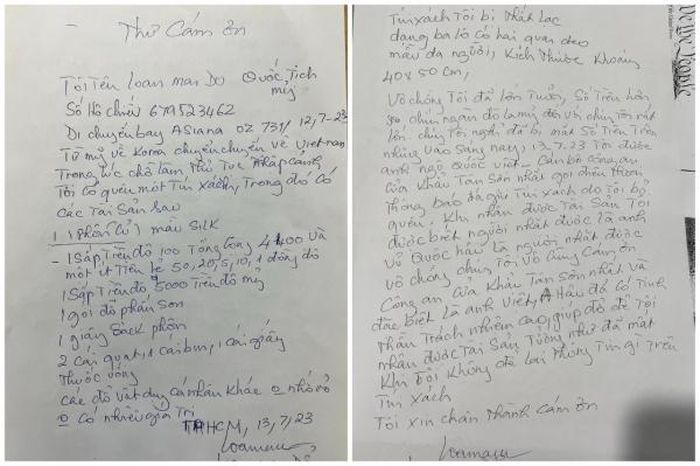 Thư Cám Ơn
Tôi Tên Loan mai Do Quốc Tịch
mỹ
Số Hộ chiếu 679523462
Di chuyến bay ASiana OZ 731/ 12,7-23
Từ mỹ về Korea chuyển chuyến về Việt nam
Trong lúc chờ làm Thủ Tục Nhập cảnh
Tôi Có quên một Túi Xách, Trong đó Có
các Tài Sản Sau
1 màu SILK
- 1 Sấp Tiền đô 100 Tổng Cộng 4400 và
một ít Tiền lẻ 50, 20, 5, 10, 1 đồng đô
1 Sấp Tiền đô 5000 Tiền đô mỹ
1 gói đồ phấn Son
1 giấy Sack phôn
2 cái quạt, 1 cái bm, 1 cái giấy
Thuốc uống
các đồ vật dụng cá nhân khác nhỏ
Có nhiều giá Trị
TPHCM, 13,7/23
Túi xách Tôi bị Thất Lạc
dạng ba lô có hai quai đeo
màu da người, Kích Thước Khoảng
40 x 50 cm,
Vợ chồng Tôi đã lớn Tuổi, Số Tiền hơn
chín ngàn đô la mỹ đối với chúng Tôi rất
lớn, chúng Tôi nghĩ đã bị mất Số Tiền Trên
nhưng vào Sáng nay, 13.7.23 Tôi được
anh ngô Quốc Việt - Cán bộ công an
Cửa Khẩu Tân Sơn nhất gọi điện Thoại
Thông báo đã giữ Túi xách do Tôi bỏ
quên, Khi nhận được Tài Sản Tôi
được biết người nhặt được là anh
Vũ Quốc hậu là người nhặt được
vợ chồng chúng Tôi Vô Cùng Cám Ơn
Công an Cửa Khẩu Tân Sơn nhất và
đặc biệt là anh Việt, A Hậu đã Có Tinh
Thần Trách nhiệm cao, giúp đỡ để Tôi
nhận được Tài Sản Tưởng như đã mất
Khi Tôi Không để lại Thông Tin gì Trên
Túi Xách
Tôi xin chân Thành Cám Ơn